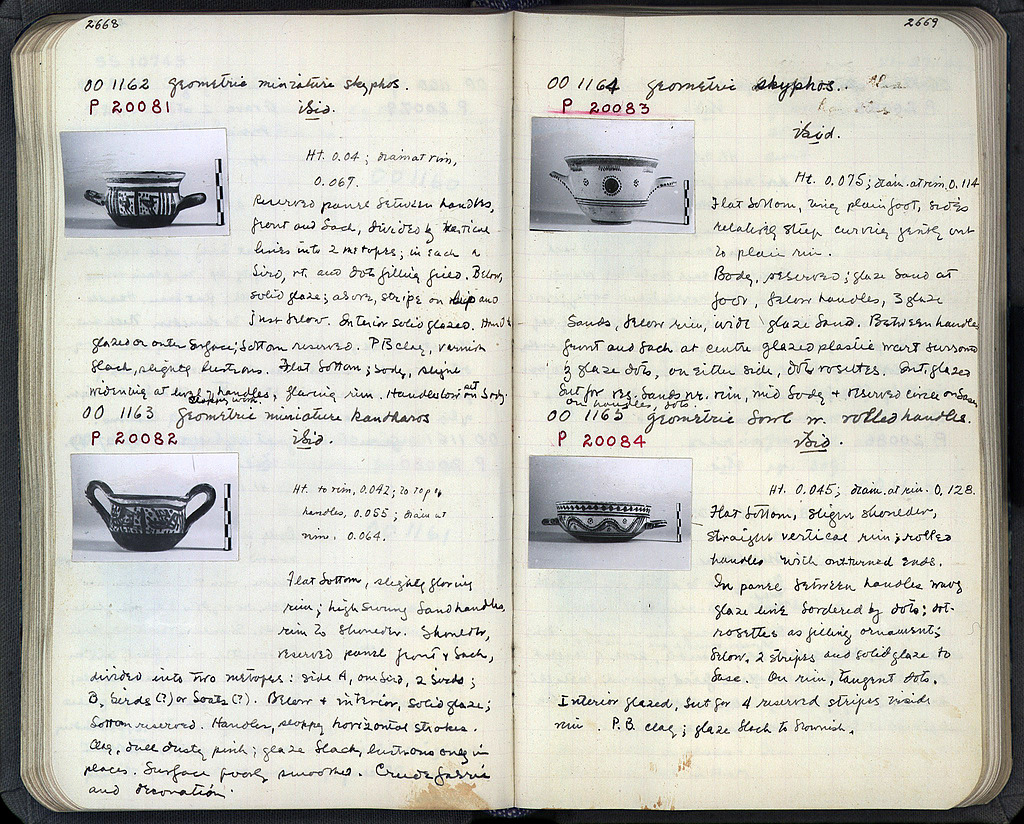 2668
OO 1162 Geometric miniature skyphos.
P 20081 ibid.
Ht. 0.04; diam at rim,
0.067.
Reserved panel between handles,
front and back, divided by vertical
lines into 2 metopes; in each a
bird, rt. and dots filling field. Below,
solid glaze; above, stripe on lip and
just below. Interior solid glazed. Handles
glazed on outer surface; bottom reserved. P B clay, varnish
black, slightly lustrous. Flat bottom; body, slight
widening at level of handles, flaring rim. Handles low on body.
OO 1163 Geometric miniature kantharos
P 20082 ibid.
Ht. to rim, 0.042; to top of
handles, 0.055; diam at
rim. 0.064.
Flat bottom, slightly flaring
rim; high swung band handles,
rim to shoulder. Shoulder,
reserved panel front & back,
divided into two metopes: side A, one bird, 2 birds;
B, birds (?) or boats (?). Below & interior, solid glaze;
bottom reserved. Handles, sloppy horizontal strokes.
Clay, dull dusty pink; glaze black, lustrous only in
places. Surface poorly smoothed. Crude fabric
and decoration.
2669
OO 1164 Geometric skyphos.
P 20083
ibid.
Ht. 0.075; diam. at rim, 0.114
Flat bottom, ring plain foot, sides
relatively steep curving gently out
to plain rim.
Body, reserved; glaze band at
foot, below handles, 3 glaze
bands, below rim, wide glaze band. Between handles
front and back at centre glazed plastic wart surround
by glaze dots, on either side, dots rosettes. Int. glazed
but for res. bands nr. rim, mid body & reserved circle on base
on handles, dots.
OO 1165 Geometric bowl w. rolled handles.
P 20084 ibid.
Ht. 0.045; diam. at rim. 0.128.
Flat bottom, slight shoulder,
straight vertical rim; rolled
handles with outturned ends.
In panel between handles wavy
glaze line bordered by dots; dot-
rosettes as filling ornaments;
below, 2 stripes and solid glaze to
base. On rim, tangent dots.
Interior glazed, but for 4 reserved stripes inside
rim. P.B. clay; glaze black to brownish.